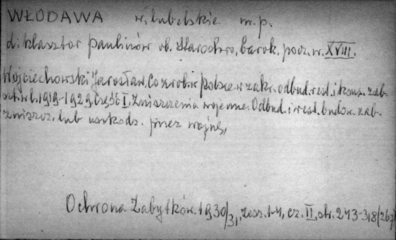 WŁODAWA w. lubelskie m.p.
d. klasztor paulinów ob. starostwo, barok, pocz. w. XVIII.
Wojciechowski Jarosław, Co zrob. w Polsce w zakr. odbud. rest. i kons. zab.
w l. 1919-1929 Część I, Zniszczenia wojenne. Odbud. i rest. budow. zab.
zniszcz. lub uszkodz. przez wojnę,
Ochrona Zabytków 1930/31, zesz. 1-4, cz. II, str. 243-318